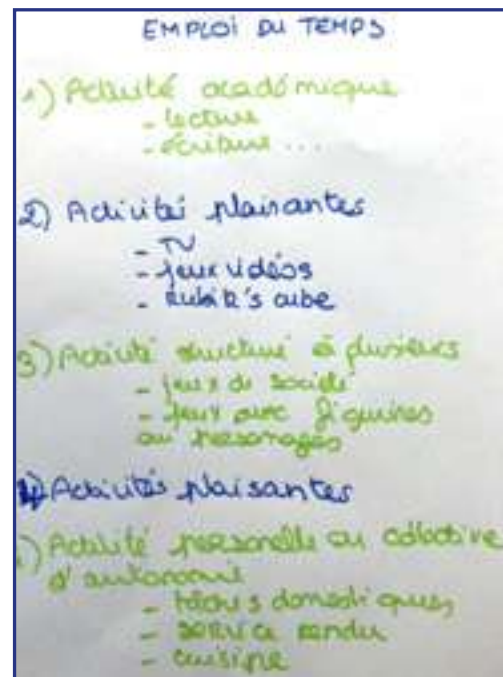 EMPLOI DU TEMPS
1) Activité académique
- lecture
- écriture ...
2) Activités plaisantes
- TV
- jeux vidéos
- rubik's cube
3) Activité structuré à plusieurs
- jeux de société
- jeux avec figurines
ou personages
4) Activités plaisantes
) Activité personelle ou colective
d'autonomie
- tâches domestiques,
- service rendu
- cuisine